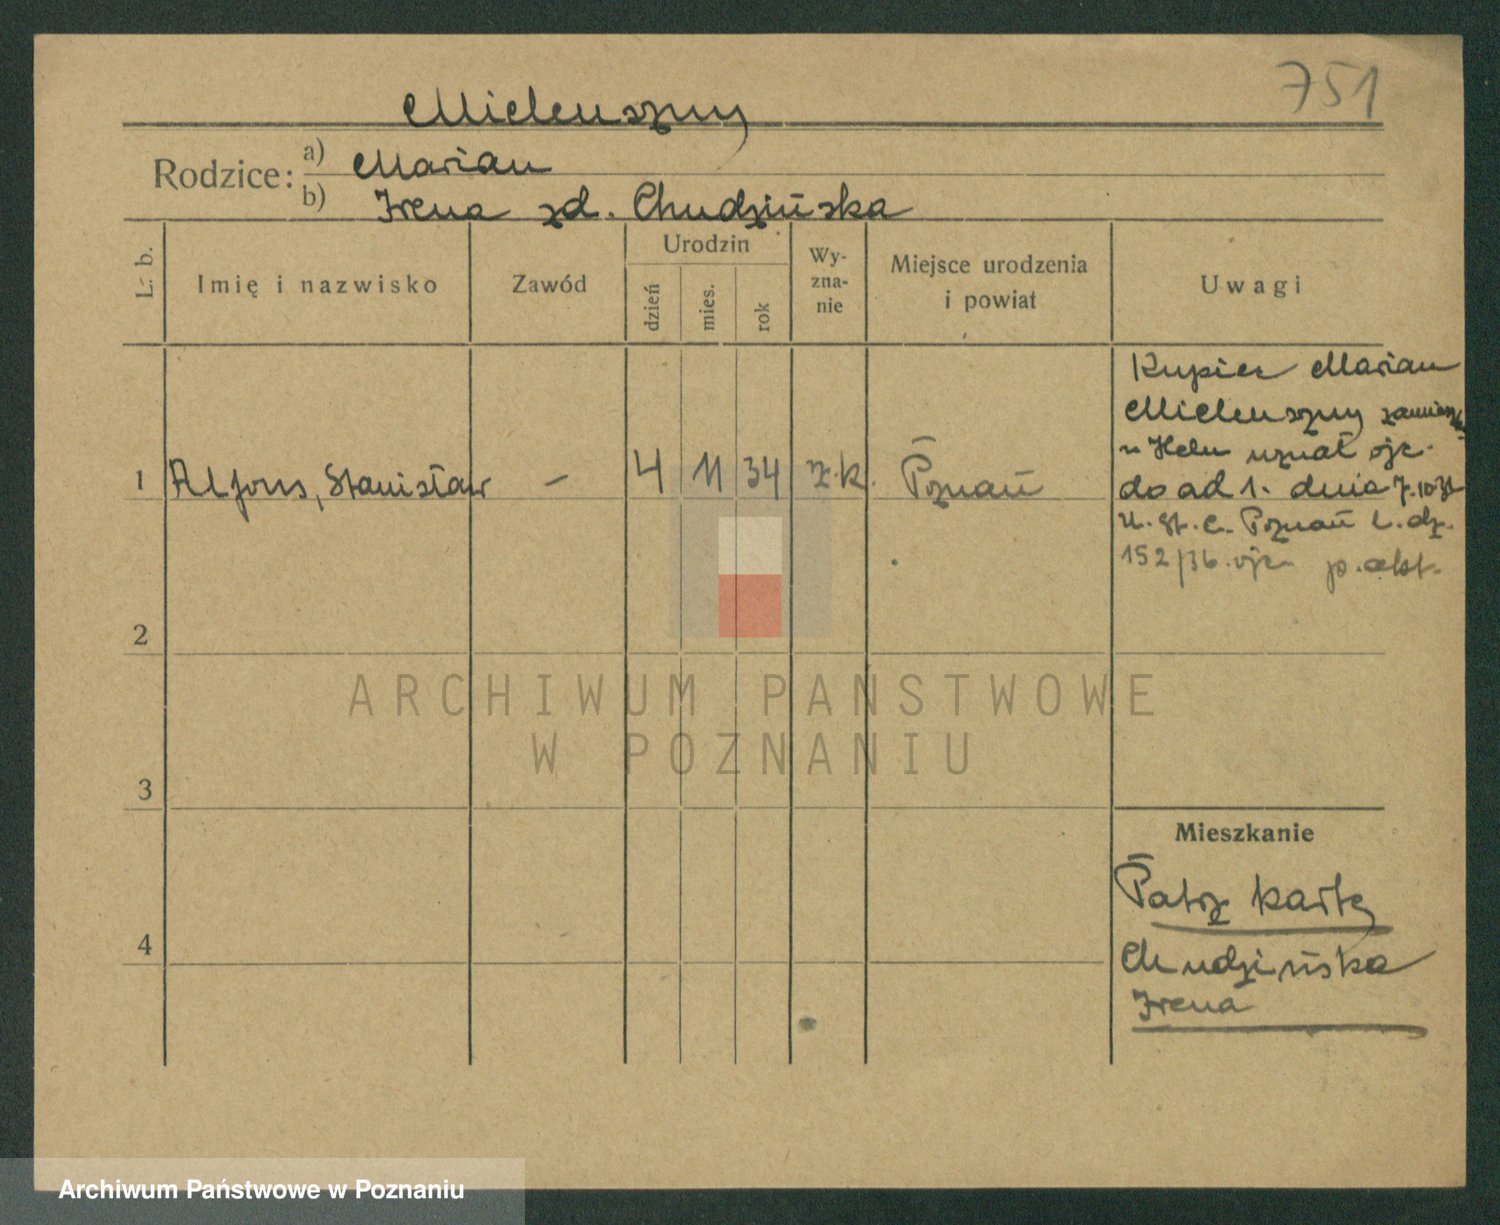 751
Mieleuszny
Rodzice:
a) Marian
b) Irena zd. Chudzińska
L. b.
Imię i nazwisko
Zawód
Urodzin
dzień
mies.
rok
Wy-
zna-
nie
Miejsce urodzenia
i powiat
Uwagi
1 Alfons, Stanisław – 4 11 34 rz.k. Poznań
Kupiec Marian
Mieleuszny
w Helu uznał ojc.
do ad 1. dnia
U. St. C. Poznań L. dz.
152/36. ojc. p. akt.
2
3
4
Mieszkanie
Patrz kartę
Chudzińska
Irena
ARCHIWUM PAŃSTWOWE
W POZNANIU
Archiwum Państwowe w Poznaniu